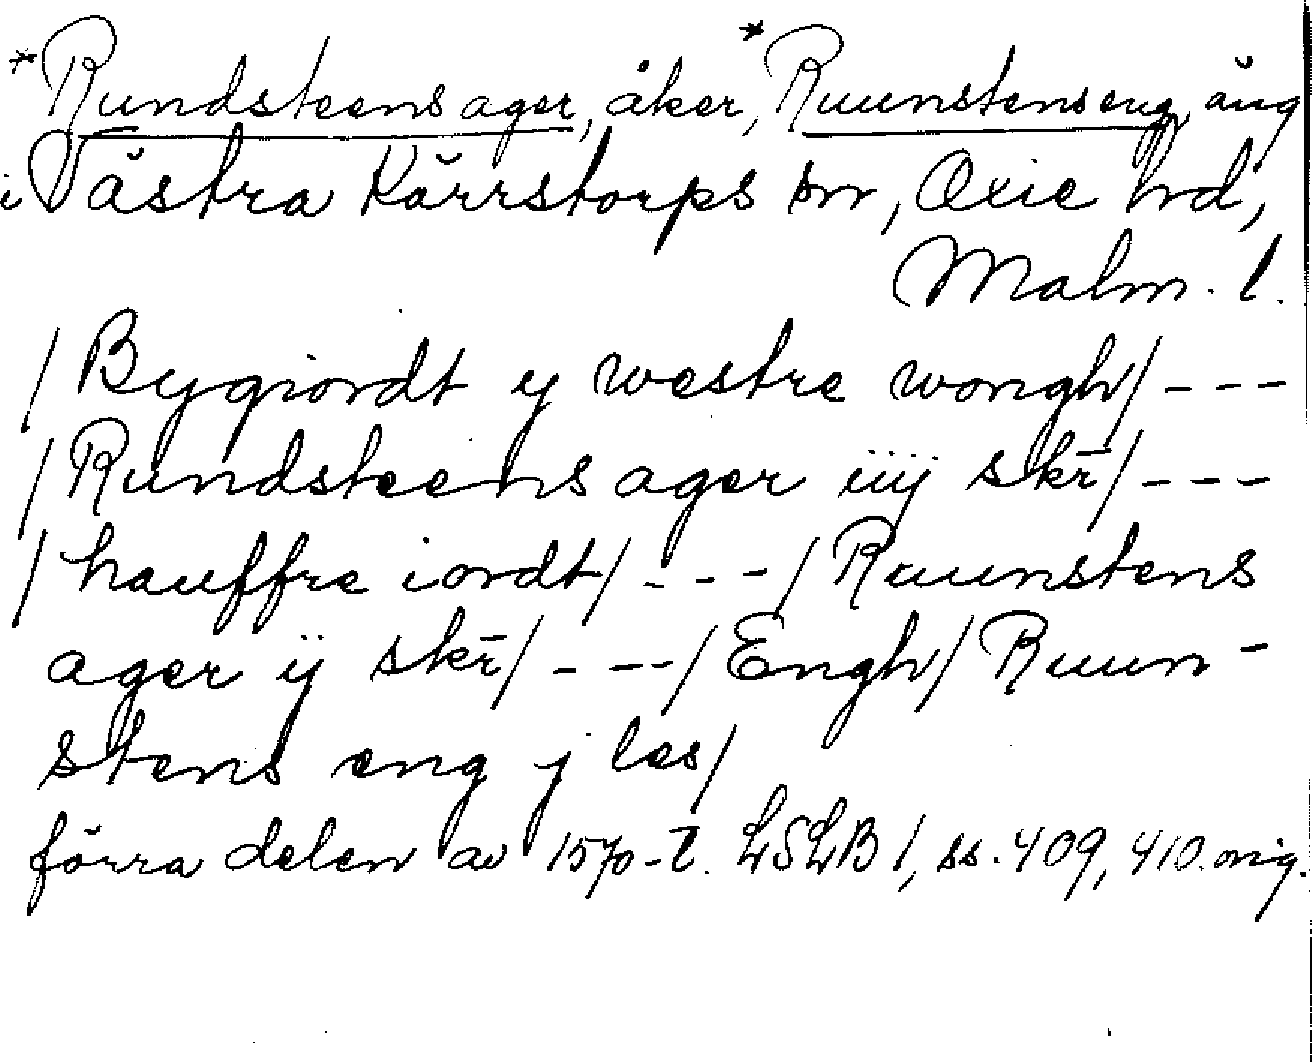 *Rundsteens ager, åker, *Ruunstens eng, äng
i Västra Kärrstorps sn, Oxie hd,
Malm. l.
/Bygiordt y westre wongh/ - - -
/Rundsteens ager iiij skr̄/ - - -
/hauffre iordt/ - - - /Ruunstens
ager ij skr̄/ - - - /Engh/ Ruun-
stens eng j les/
förra delen av 1570-t. LSLB 1, ss. 409, 410. orig.